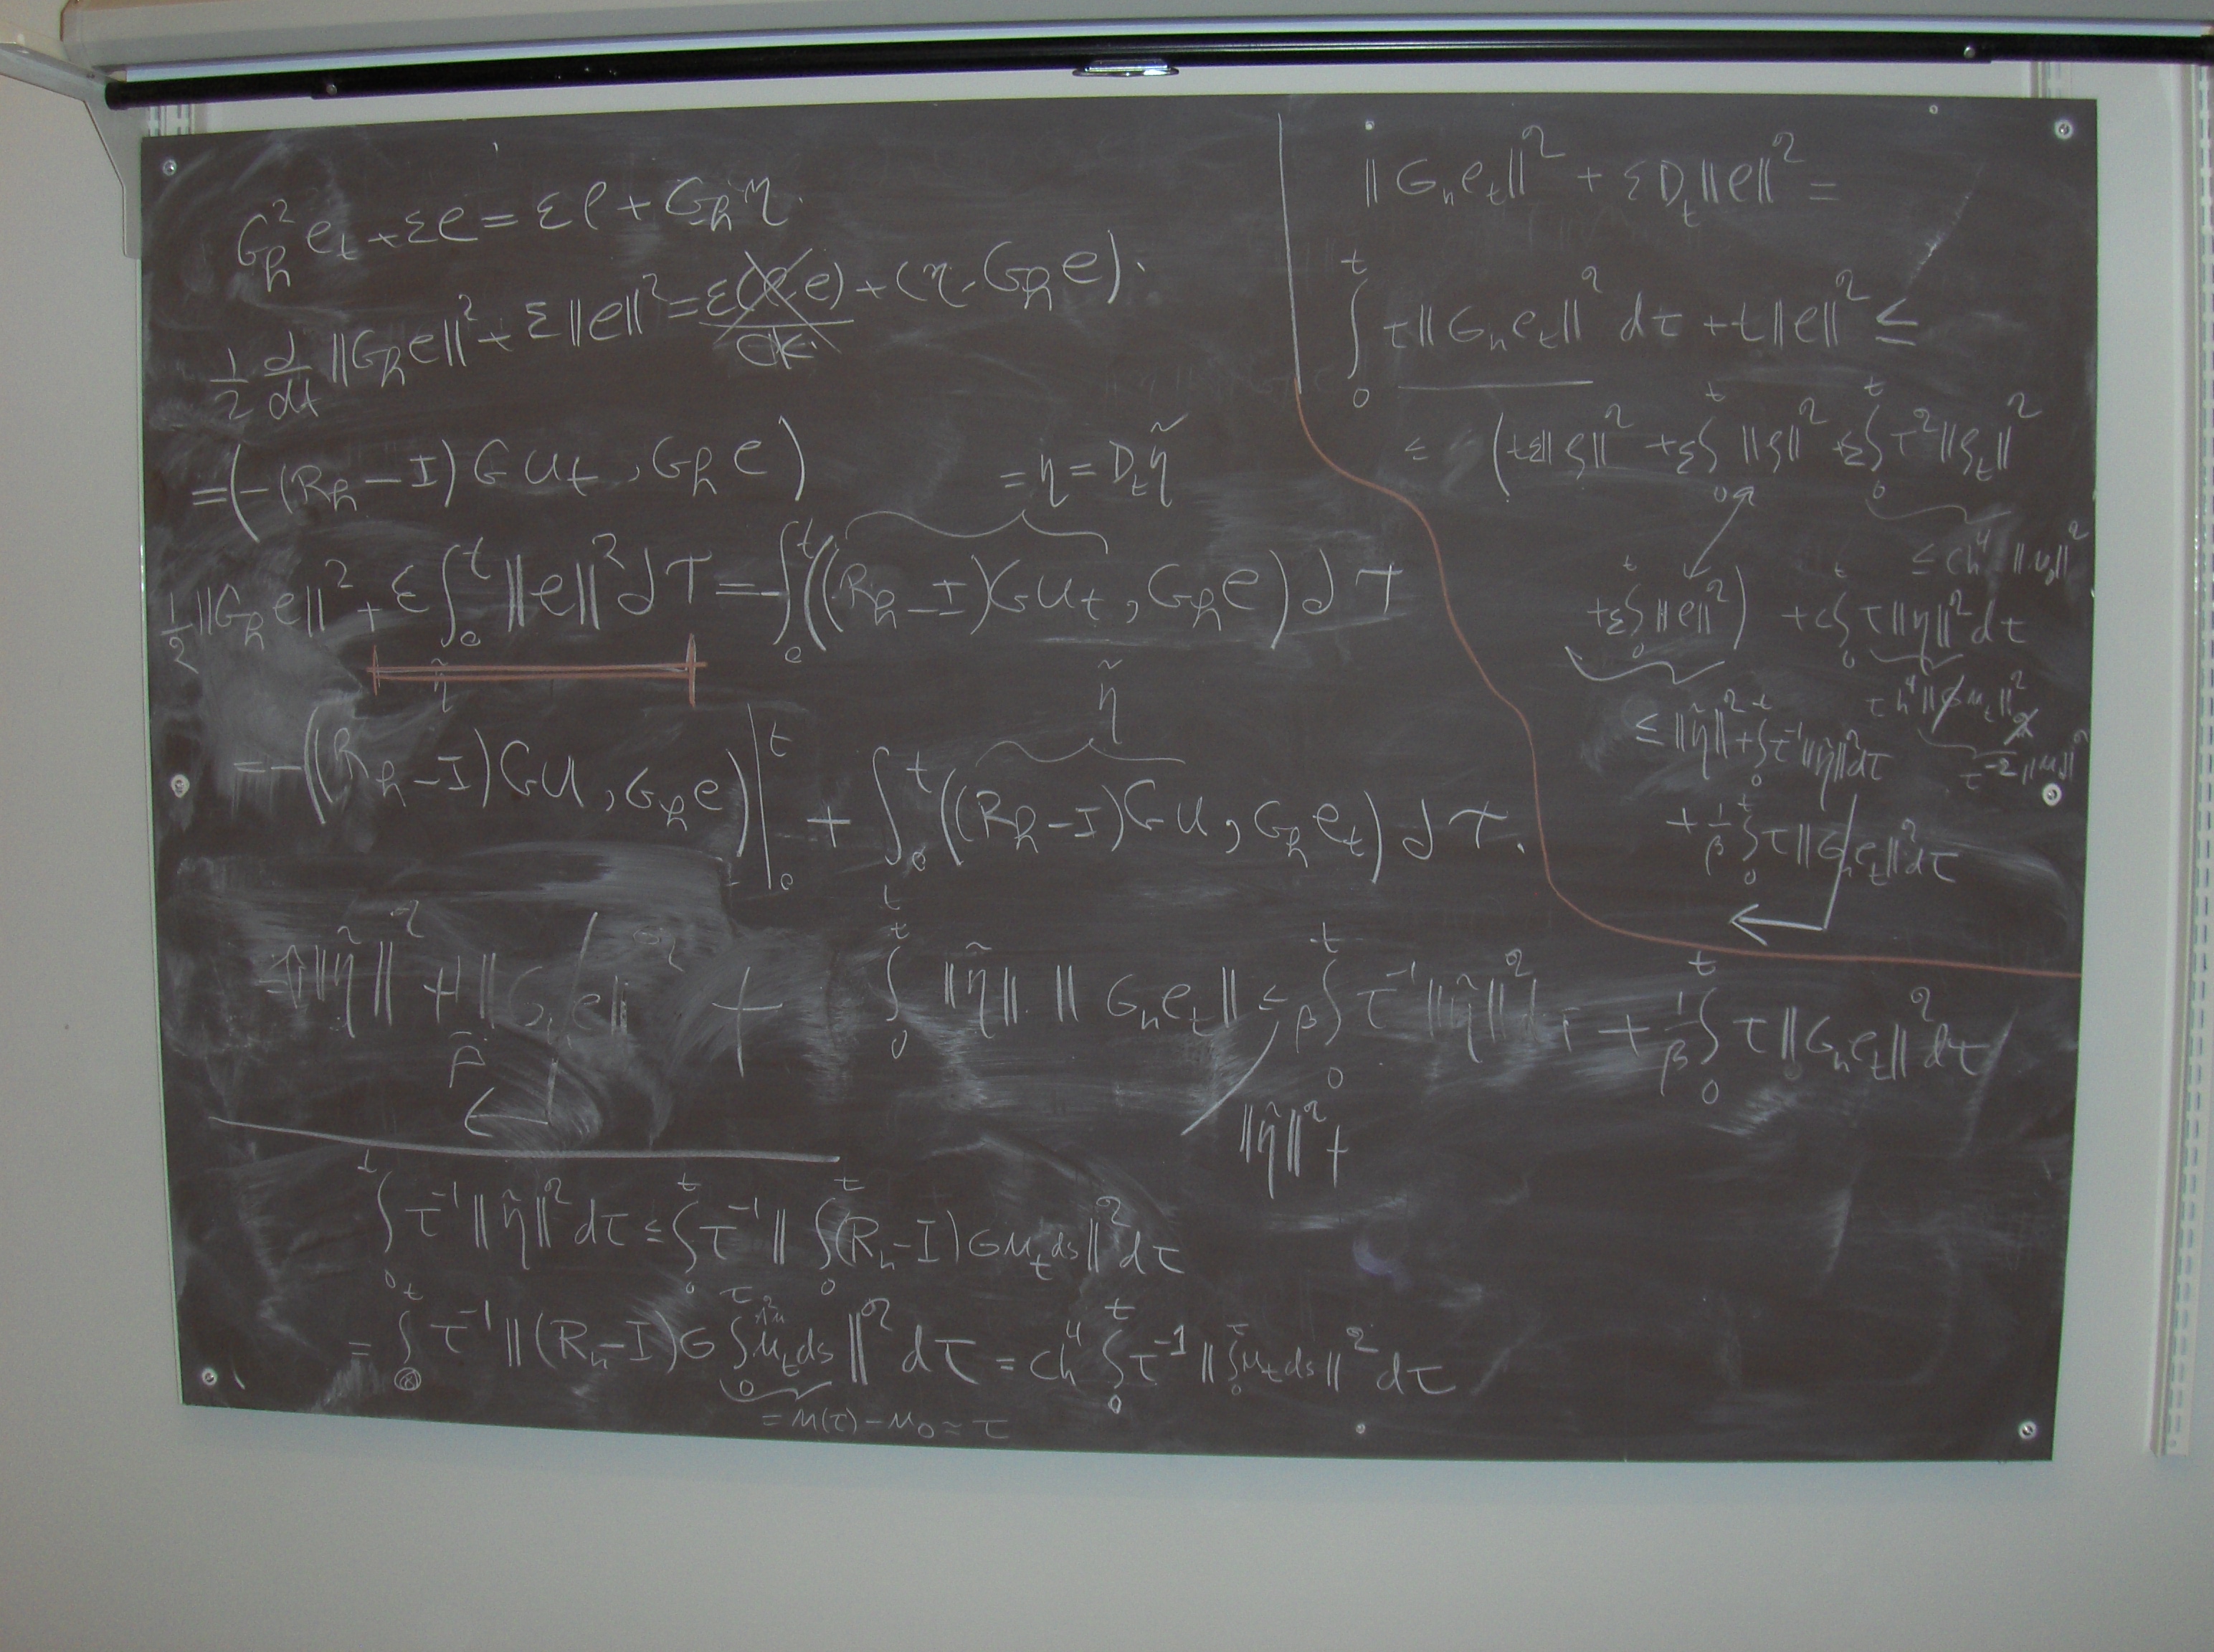 G_h^2 e_t + εe = ερ + G_h η.
1/2 d/dt ||G_h e||^2 + ε||e||^2 = ε(ρ, e) + (η, G_h e).
ok.
= (-(R_h - I) G u_t, G_h e)
= η = D_t η̃
1/2 ||G_h e||^2 + ε ∫_0^t ||e||^2 dτ = -∫_0^t ((R_h - I) G u_t, G_h e) dτ
η̃
η̃
= -((R_h - I) G u, G_h e)|_0^t + ∫_0^t ((R_h - I) G u, G_h e_t) dτ.
||η̃||^2 + || G_h e||^2 + ∫_0^t ||η̃|| ||G_h e_t|| ≤ β ∫_0^t τ^-1 ||η̃||^2 + 1/β ∫_0^t τ ||G_h e_t||^2 dτ
||η̃||^2 +
∫_0^t τ^-1 ||η̃||^2 dτ ≤ ∫_0^t τ^-1 || ∫_0^t (R_h - I) G u_t ds||^2 dτ
= ∫_0^t τ^-1 ||(R_h - I) G ∫_0^τ u_t ds||^2 dτ = ch^4 ∫_0^t τ^-1 ||∫_0^τ u_t ds||^2 dτ
= u(τ) - u_0 ≈ τ
||G_h e_t||^2 + ε D_t ||e||^2 =
∫_0^t τ ||G_h e_t||^2 dτ + t ||e||^2 ≤
≤ (tε||ρ||^2 + ε ∫_0^t ||ρ||^2 + ε ∫_0^t τ^2 ||ρ_t||^2
≤ ch^4 ||u_0||^2
+ ε ∫_0^t ||e||^2) + c ∫_0^t τ ||η||^2 dτ
≤ ||η̃||^2 + ∫_0^t τ^-1 ||η̃||^2 dτ
τ^-2 ||u_0||^2
+ 1/β ∫_0^t τ ||G_h e_t||^2 dτ